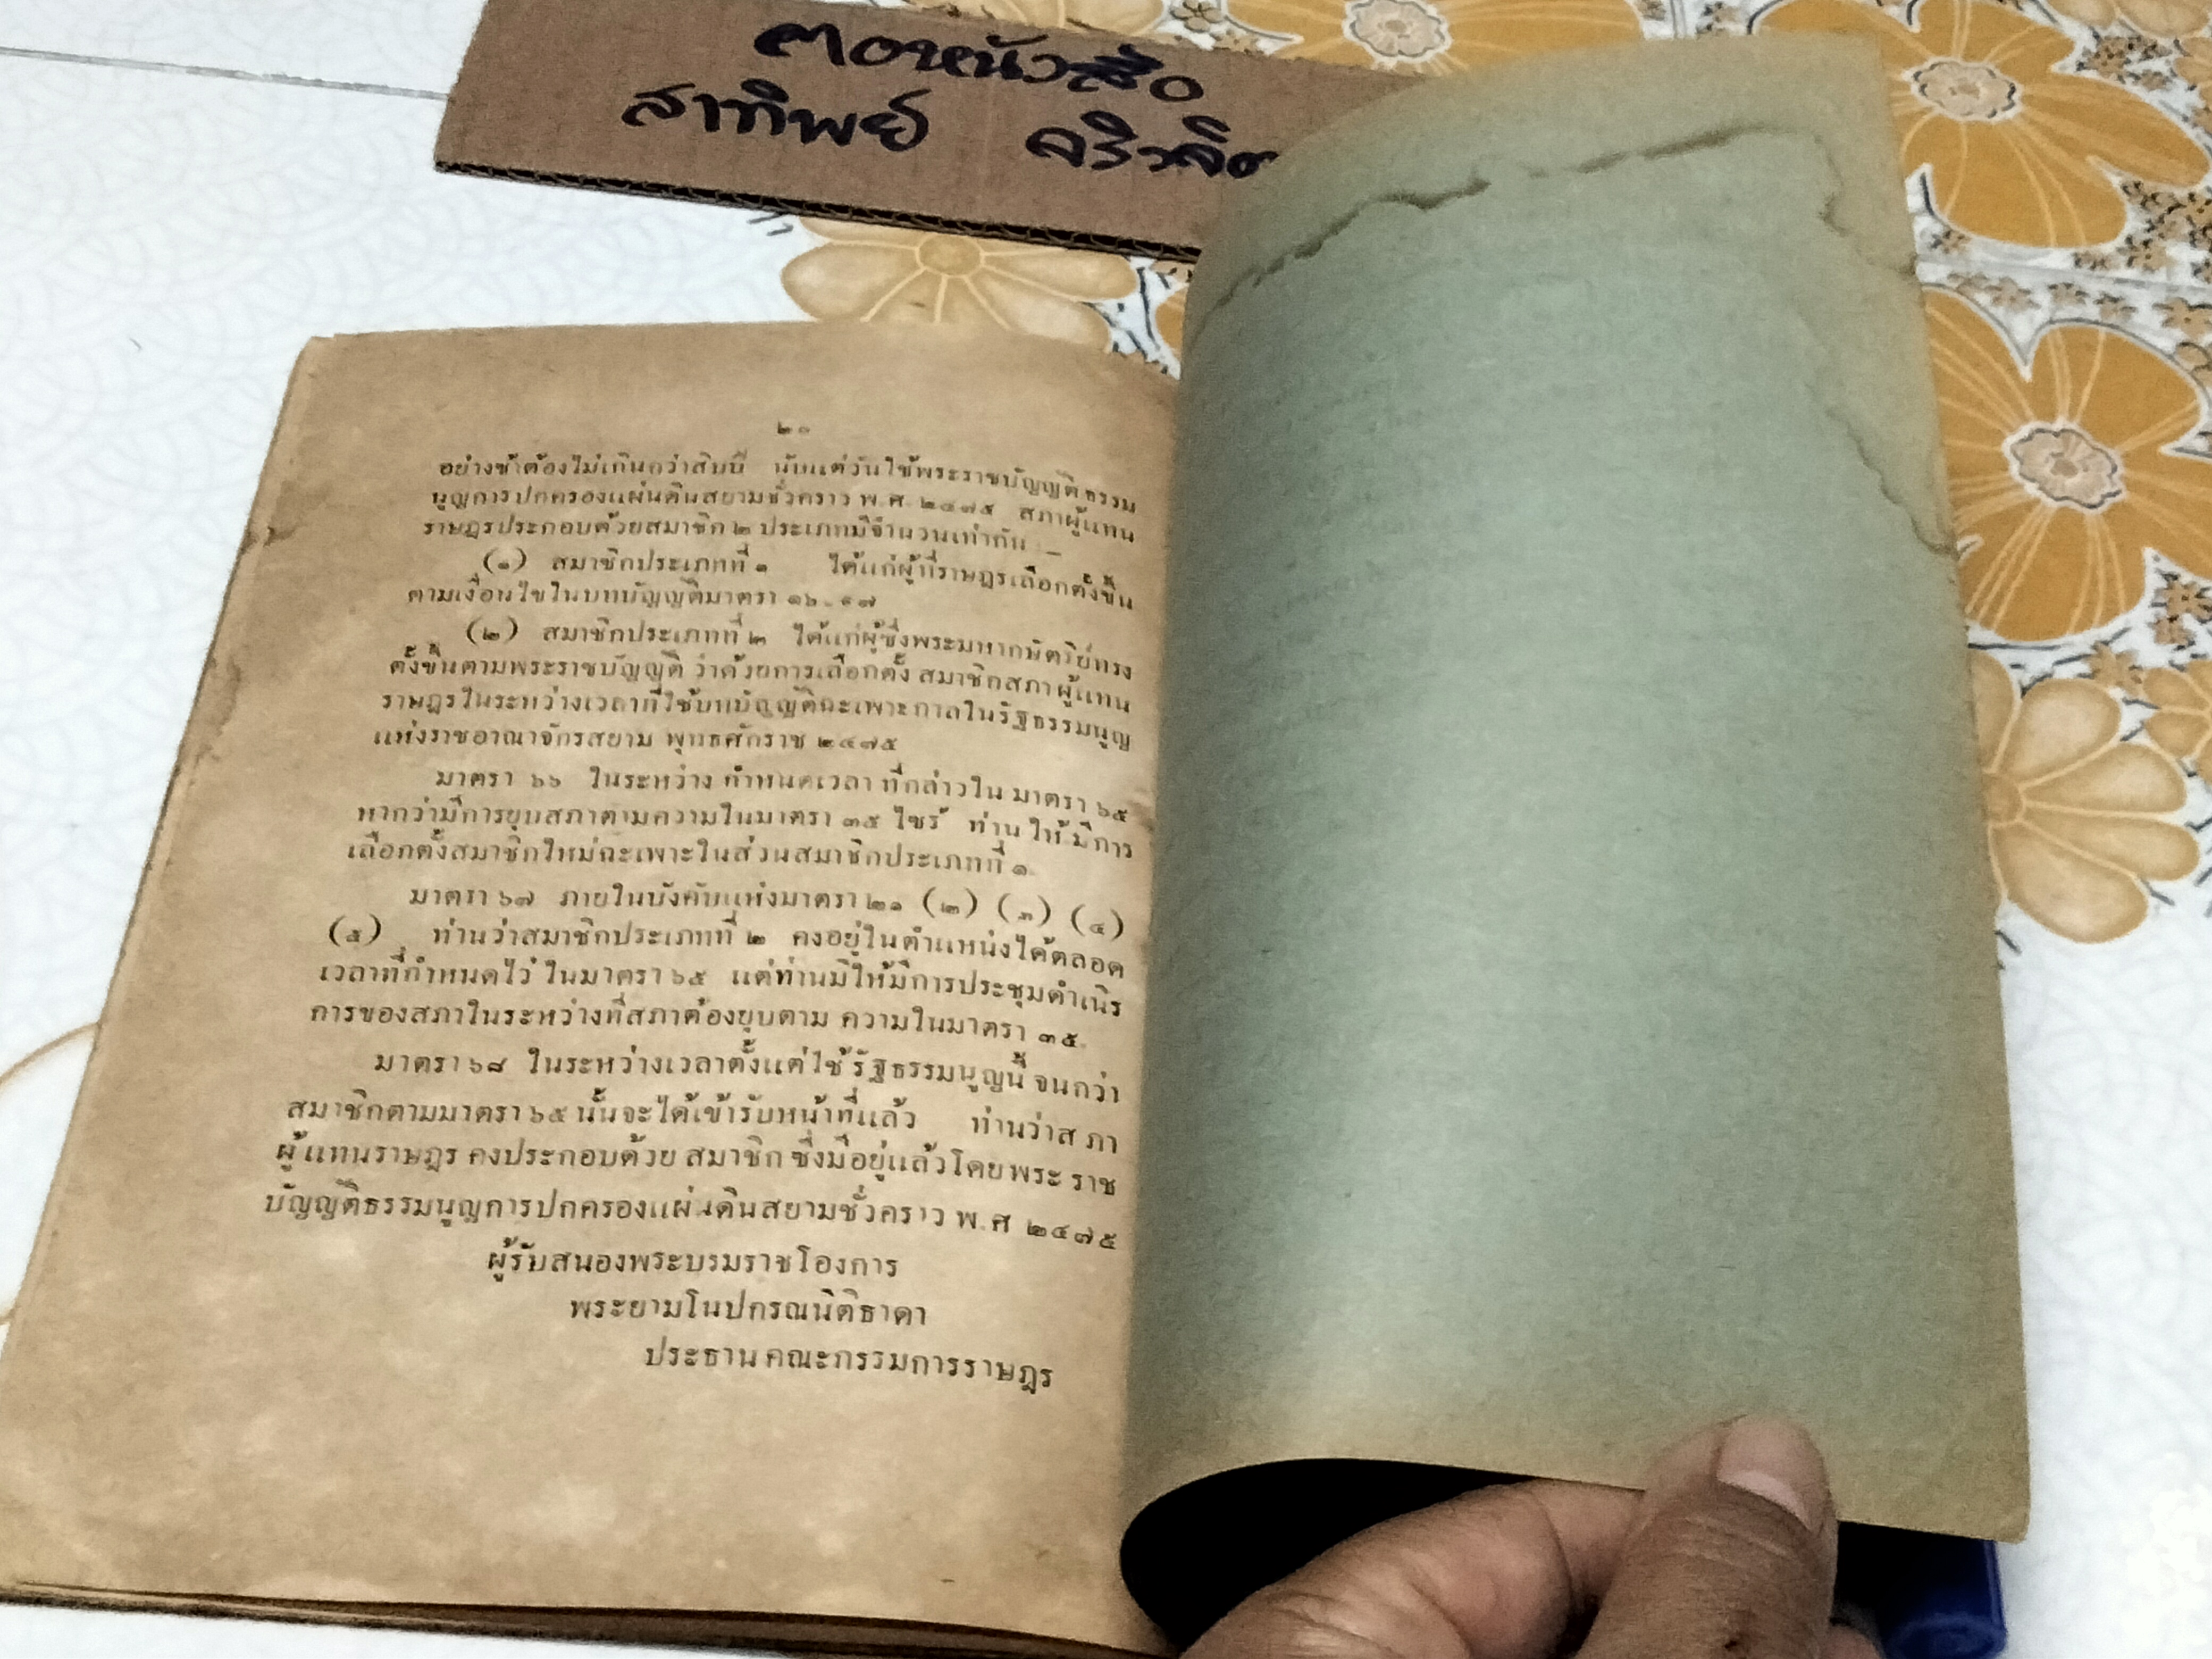 ๓อหนังสือ
สาทิพย์
๒๐
อย่างช้าต้องไม่เกินกว่าสิบปี นับแต่วันใช้พระราชบัญญัติธรรม
นูญการปกครองแผ่นดินสยามชั่วคราว พ.ศ. ๒๔๗๕ สภาผู้แทน
ราษฎรประกอบด้วยสมาชิก ๒ ประเภทมีจำนวนเท่ากัน :—
(๑) สมาชิกประเภทที่ ๑ ได้แก่ผู้ที่ราษฎรเลือกตั้งขึ้น
ตามเงื่อนไขในบทบัญญัติมาตรา ๑๖-๑๗
(๒) สมาชิกประเภทที่ ๒ ได้แก่ผู้ซึ่งพระมหากษัตริย์ทรง
ตั้งขึ้นตามพระราชบัญญัติ ว่าด้วยการเลือกตั้ง สมาชิกสภาผู้แทน
ราษฎรในระหว่างเวลาที่ใช้บทบัญญัติฉะเพาะกาลในรัฐธรรมนูญ
แห่งราชอาณาจักรสยาม พุทธศักราช ๒๔๗๕
มาตรา ๖๖ ในระหว่าง กำหนดเวลา ที่กล่าวใน มาตรา ๖๕
หากว่ามีการยุบสภาตามความในมาตรา ๓๕ ไซร้ ท่านให้มีการ
เลือกตั้งสมาชิกใหม่ฉะเพาะในส่วนสมาชิกประเภทที่ ๑
มาตรา ๖๗ ภายในบังคับแห่งมาตรา ๒๑ (๒) (๓) (๔)
(๕) ท่านว่าสมาชิกประเภทที่ ๒ คงอยู่ในตำแหน่งได้ตลอด
เวลาที่กำหนดไว้ ในมาตรา ๖๕ แต่ท่านมิให้มีการประชุมดำเนิร
การของสภาในระหว่างที่สภาต้องยุบตาม ความในมาตรา ๓๕
มาตรา ๖๘ ในระหว่างเวลาตั้งแต่ใช้รัฐธรรมนูญนี้ จนกว่า
สมาชิกตามมาตรา ๖๕ นั้นจะได้เข้ารับหน้าที่แล้ว ท่านว่าสภา
ผู้แทนราษฎร คงประกอบด้วย สมาชิก ซึ่งมีอยู่แล้วโดยพระราช
บัญญัติธรรมนูญการปกครองแผ่นดินสยามชั่วคราว พ.ศ ๒๔๗๕
ผู้รับสนองพระบรมราชโองการ
พระยามโนปกรณนิติธาดา
ประธานคณะกรรมการราษฎร